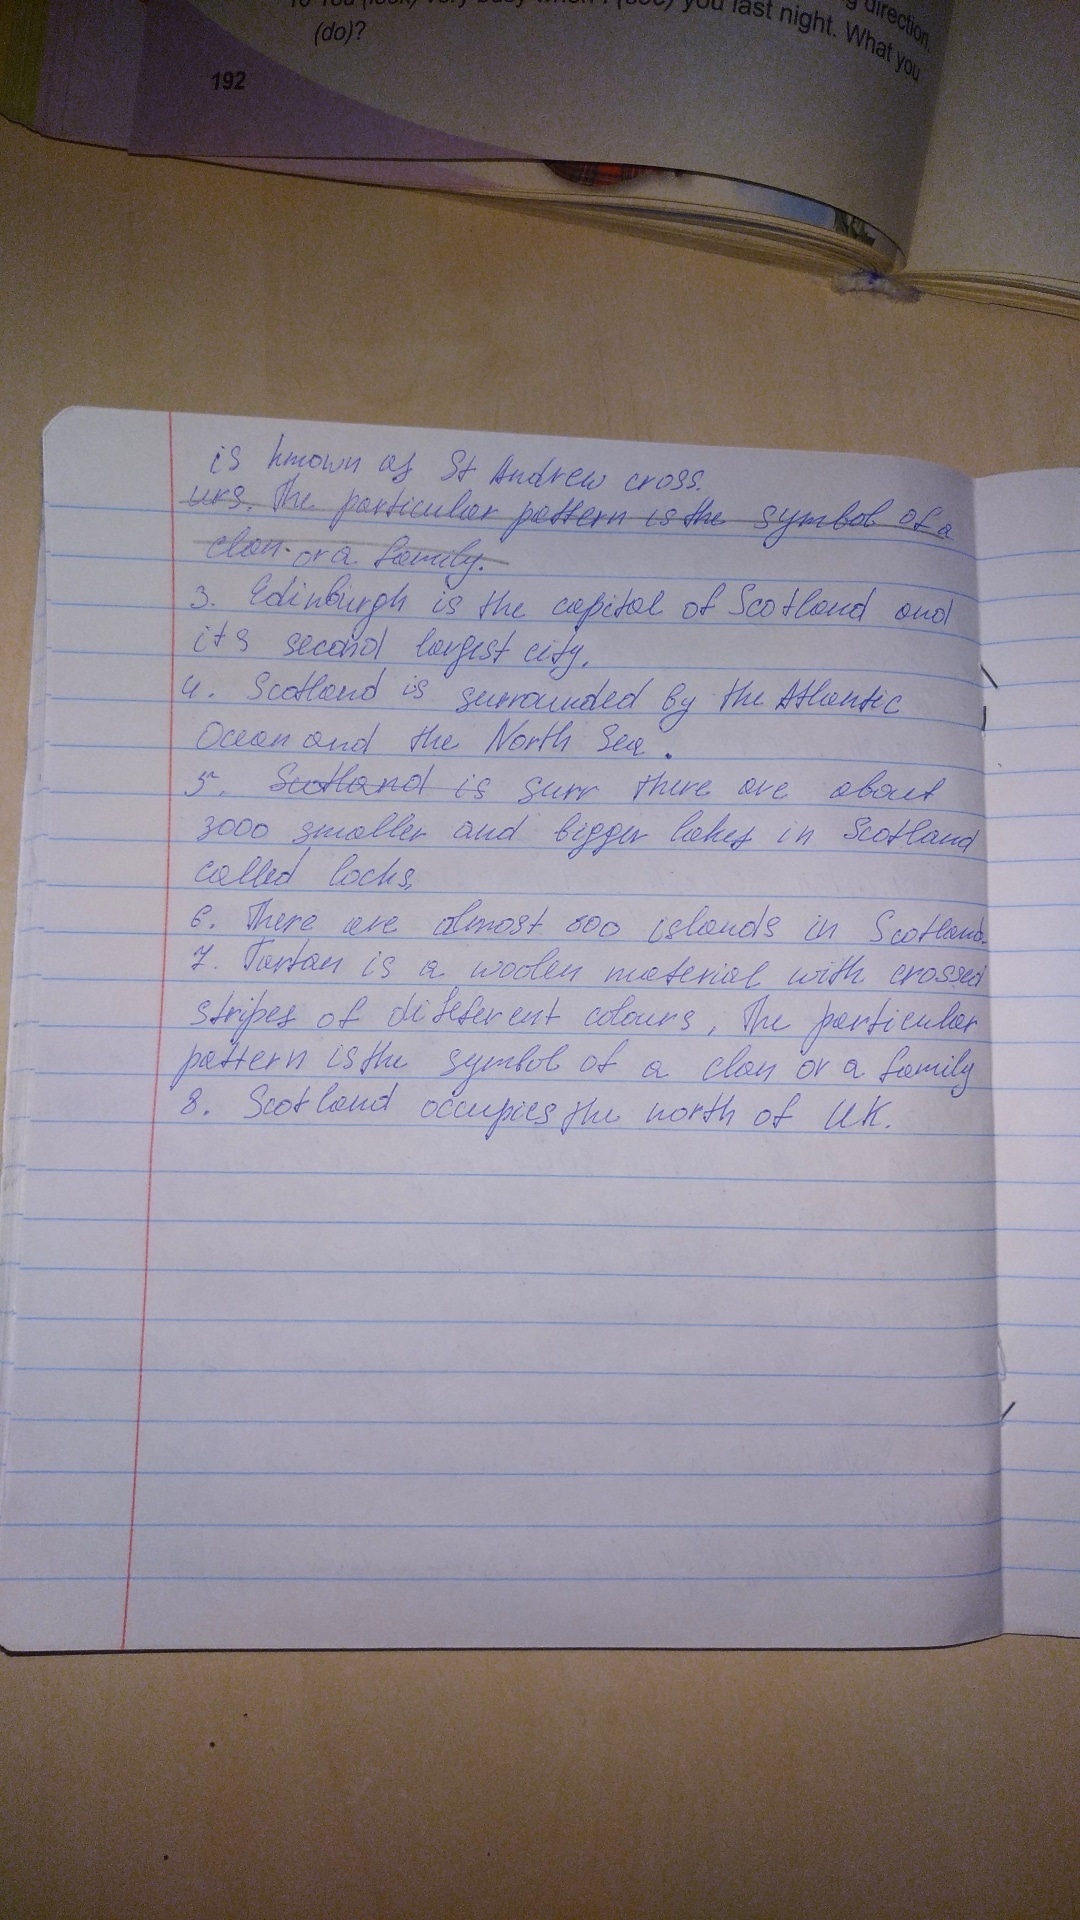 direction.
you last night. What you
(do)?
192
is known as St Andrew cross.
urs. The particular pattern is the symbol of a
clan. or a family.
3. Edinburgh is the capital of Scotland and
its second largest city.
4. Scotland is surrounded by the Atlantic
Ocean and the North Sea.
5. Scotland is surr there are about
3000 smaller and bigger lakes in Scotland
called locks.
6. There are almost 800 islands in Scotland.
7. Tartan is a woolen material with crossed
stripes of different colours, The particular
pattern is the symbol of a clan or a family
8. Scotland occupies the north of UK.